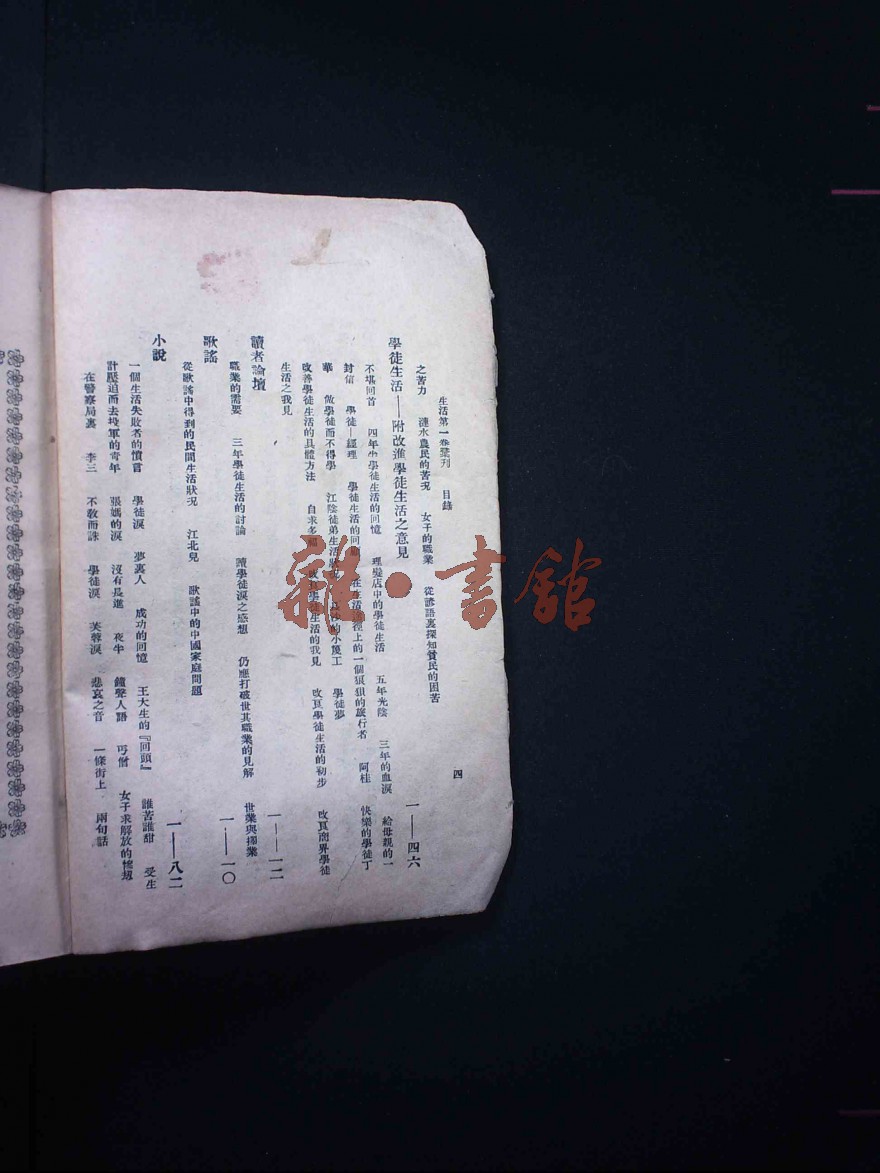 生活第一卷彙刊　目錄
四
之苦力　漣水農民的苦況　女子的職業　從諺語裏探知貧民的困苦
學徒生活——附改進學徒生活之意見　一——四六
不堪回首　四年中學徒生活的回憶　理髮店中的學徒生活　五年光陰　三年的血淚　給母親的一
封信　學徒—經理　學徒生活的回　上的一個狼狽的旅行者　阿桂　快樂的學徒丁
華　做學徒而不得學　江陰徒弟生活狀　的小篾工　學徒夢
改善學徒生活的具體方法　自求多福　改良學徒生活的我見　改良學徒生活的初步　改良商界學徒
生活之我見
讀者論壇　一——一二
職業的需要　三年學徒生活的討論　讀學徒淚之感想　仍應打破世其職業的見解　世業與擇業
歌謠　一——一〇
從歌謠中得到的民間生活狀況　江北兒　歌謠中的中國家庭問題
小說　一——八二
一個生活失敗者的憤言　學徒淚　夢裏人　成功的回憶　王大生的『回頭』　誰苦誰甜　受生
計壓迫而去投軍的青年　張媽的淚　沒有長進　夜半　鐘聲人語　丐僧　女子求解放的慘刼
在警察局裏　李三　不教而誅　學徒淚　芙蓉淚　悲哀之音　一條街上　兩句話
雜·書館